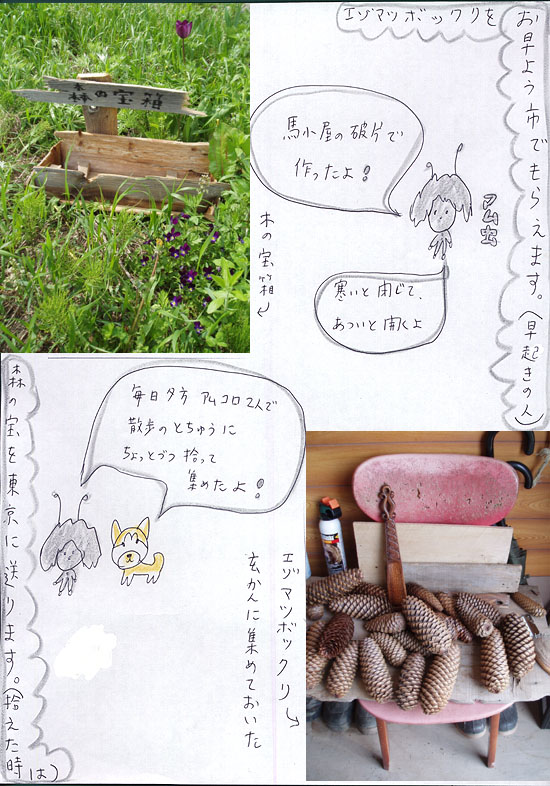 エゾマツボックリを
お早よう市でもらえます。(早起きの人)
森の宝箱
馬小屋の破片で
作ったよ!
アム虫
木の宝箱
寒いと閉じて、
あついと開くよ
森の宝を東京に送ります。(拾えた時は)
毎日夕方 アムコロ2人で
散歩のとちゅうに
ちょっとづつ 拾って
集めたよ!
エゾマツボックリ
玄かんに集めておいた